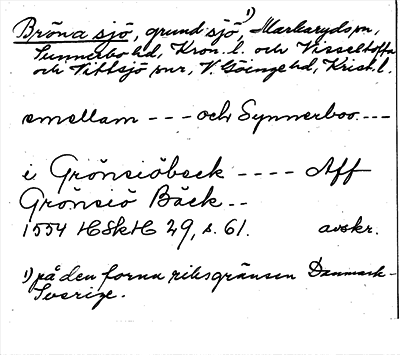 Bröna sjö, grund sjö¹⁾, Markaryds sn,
Sunnerbo hd, Kron. l. och Visseltofta
och Vittsjö snr, V. Göinge hd, Krist. l.
emellam - - - och Synnerboo - - -
i Grönsiöbeck - - - - Aff
Grönsiö Bäck - -
1554 HSkH 29, s. 61. avskr.
1) på den forna riksgränsen Danmark-
Sverige.